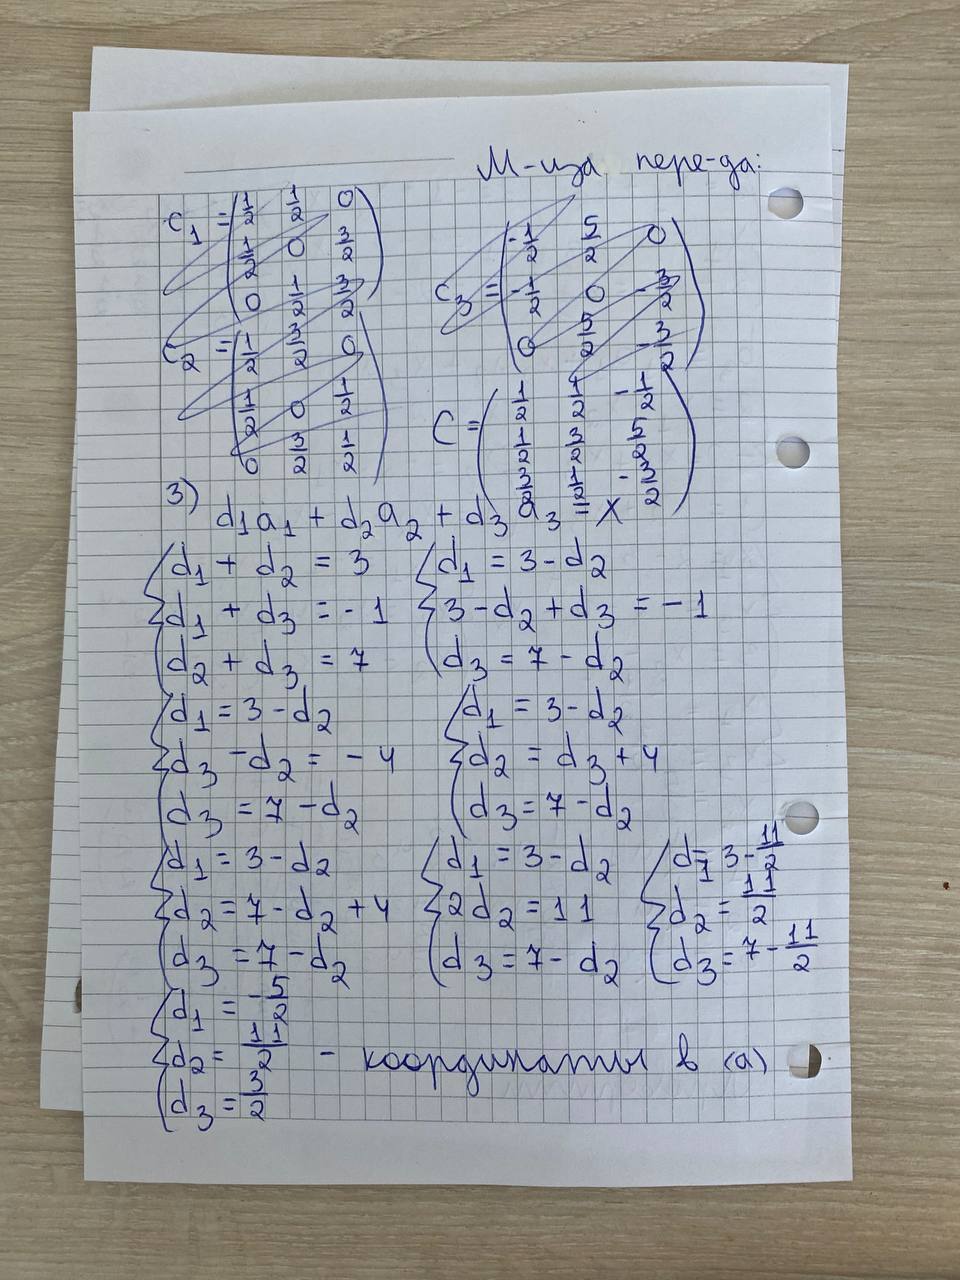 М-ца пере-да:
c₁ = (1/2 1/2 0
1/2 0 3/2
0 1/2 3/2)
c₂ = (1/2 3/2 0
1/2 0 1/2
0 3/2 1/2)
c₃ = (-1/2 5/2 0
-1/2 0 -3/2
0 5/2 -3/2)
C = (1/2 1/2 -1/2
1/2 3/2 5/2
3/2 1/2 -3/2)
3) d₁a₁ + d₂a₂ + d₃a₃ = x
{d₁ + d₂ = 3
d₁ + d₃ = -1
d₂ + d₃ = 7
{d₁ = 3 - d₂
3 - d₂ + d₃ = -1
d₃ = 7 - d₂
{d₁ = 3 - d₂
d₃ - d₂ = -4
d₃ = 7 - d₂
{d₁ = 3 - d₂
d₂ = d₃ + 4
d₃ = 7 - d₂
{d₁ = 3 - d₂
d₂ = 7 - d₂ + 4
d₃ = 7 - d₂
{d₁ = 3 - d₂
2d₂ = 11
d₃ = 7 - d₂
{d₁ = 3 - 11/2
d₂ = 11/2
d₃ = 7 - 11/2
{d₁ = -5/2
d₂ = 11/2 - координаты в (a)
d₃ = 3/2